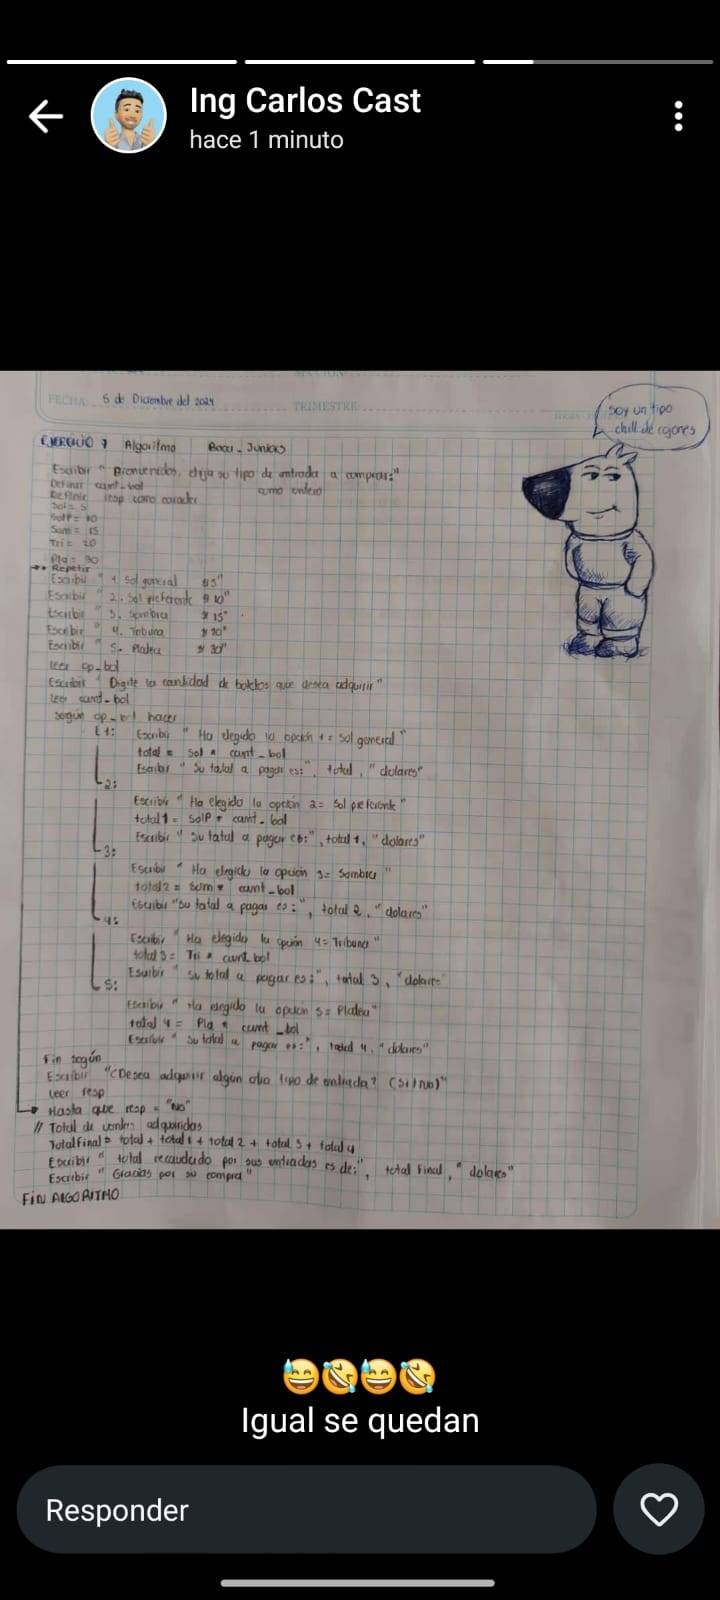 Ing Carlos Cast
hace 1 minuto
FECHA: 5 de Diciembre del 2024
TRIMESTRE
soy un tipo
chill de cojones
EJERCICIO 7 Algoritmo Boca - Juniors
Escribir " Bienvenidos, elija su tipo de entrada a comprar:"
Definir cant-bol como entero
Definir resp como caracter
Sol = 5
SolP = 10
Som = 15
Tri = 20
Pla = 30
Repetir
Escribir " 1. Sol general $5"
Escribir " 2. Sol preferente $10"
Escribir " 3. Sombra $15"
Escribir " 4. Tribuna $20"
Escribir " 5. Platea $30"
leer op-bol
Escribir " Digite la cantidad de boletos que desea adquirir"
leer cant-bol
según op-bol hacer
1: Escribir " Ha elegido la opción 1 = Sol general"
total = Sol * cant_bol
Escribir " Su total a pagar es:", total, "dolares"
2:
Escribir " Ha elegido la opción 2= Sol preferente"
total1 = SolP * cant-bol
Escribir " su total a pagar es:", total1, "dolares"
3:
Escribir " Ha elegido la opción 3= Sombra"
total2 = Som * cant-bol
Escribir "su total a pagar es:", total 2, "dolares"
4:
Escribir " Ha elegido la opción 4= Tribuna"
total 3= Tri * cant bol
Escribir " su total a pagar es:", total 3, "dolares"
5:
Escribir " Ha elegido la opción 5= Platea"
total 4 = Pla * cant_bol
Escribir " su total a pagar es:", total 4, "dolares"
Fin según
Escribir "¿Desea adquirir algún otro tipo de entrada? (Si/no)"
leer resp
Hasta que resp = "No"
// Total de ventas adquiridas
Total Final = total + total 1 + total 2 + total 3 + total 4
Escribir " total recaudado por sus entradas es de:", total Final, " dolares"
Escribir " Gracias por su compra"
FIN ALGORITMO
😅🤣😅🤣
Igual se quedan
Responder